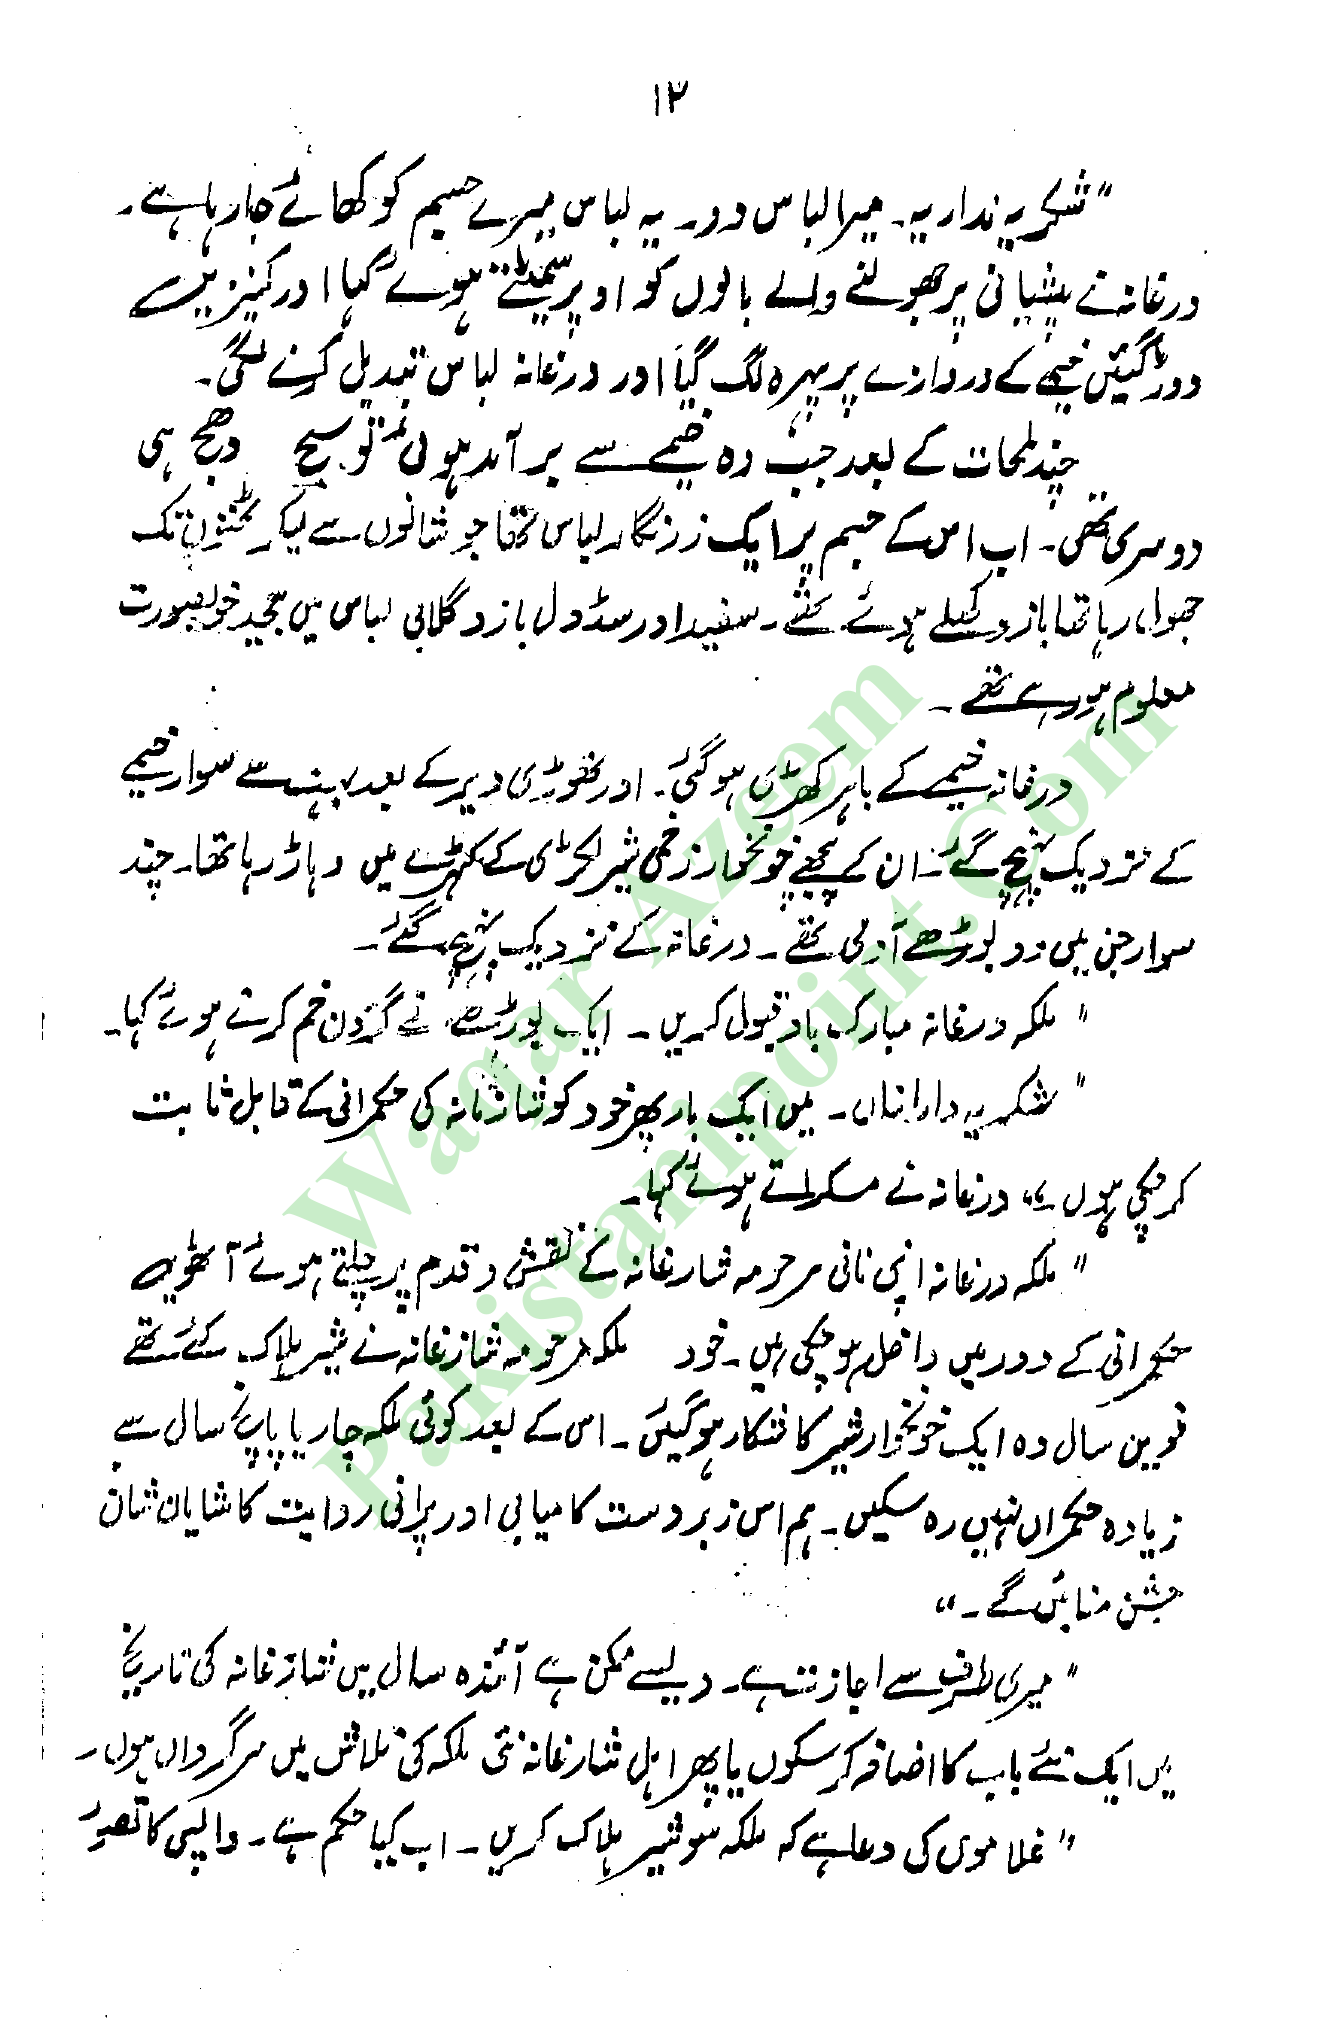 ۱۳
"شکریہ نداریہ۔ میرا لباس دو۔ یہ لباس میرے جسم کو کھائے جا رہا ہے۔
درغانہ نے پیشانی پر جھولنے والے بالوں کو اوپر سمیٹتے ہوئے کہا اور کنیزیں
دوڑ گئیں خیمے کے دروازے پر پہرہ لگ گیا اور درغانہ لباس تبدیل کرنے لگی۔
چند لمحات کے بعد جب وہ خیمے سے برآمد ہوئی تو سج دھج ہی
دوسری تھی۔ اب اس کے جسم پر ایک زرنگار لباس تھا جو شانوں سے لیکر ٹخنوں تک
جھول رہا تھا بازو کھلے ہوئے تھے۔ سفید اور سڈول بازو گلابی لباس میں بیحد خوبصورت
معلوم ہو رہے تھے۔
درغانہ خیمے کے باہر کھڑی ہو گئی۔ اور تھوڑی دیر کے بعد بہت سے سوار خیمے
کے نزدیک پہنچ گئے۔ ان کے پیچھے خونخوار زخمی شیر لکڑی کے کٹہرے میں دہاڑ رہا تھا۔ چند
سوار جن میں دو بوڑھے آدمی تھے۔ درغانہ کے نزدیک پہنچ گئے۔
"ملکہ درغانہ مبارک باد قبول کریں۔ ایک بوڑھے نے گردن خم کرتے ہوئے کہا۔
"شکریہ داراناں۔ میں ایک بار پھر خود کو شازغانہ کی حکمرانی کے قابل ثابت
کر چکی ہوں۔" درغانہ نے مسکراتے ہوئے کہا۔
"ملکہ درغانہ اپنی نانی مرحومہ شارغانہ کے نقش و قدم پر چلتی ہوئے آٹھویں
حکمرانی کے دور میں داخل ہو چکی ہیں۔ خود ملکہ مرحومہ شازغانہ نے شیر ہلاک کئے تھے
نویں سال وہ ایک خونخوار شیر کا شکار ہو گئیں۔ اس کے بعد کوئی ملکہ چار یا پانچ سال سے
زیادہ حکمراں نہیں رہ سکیں۔ ہم اس زبردست کامیابی اور پرانی روایت کا شایان شان
جشن منائیں گے۔"
"میری طرف سے اجازت ہے۔ ویسے ممکن ہے آئندہ سال میں شازغانہ کی تاریخ
میں ایک نئے باب کا اضافہ کر سکوں یا پھر اہل شارغانہ نئی ملکہ کی تلاش میں سرگرداں ہوں۔
"غلاموں کی دعا ہے کہ ملکہ سو شیر ہلاک کریں۔ اب کیا حکم ہے۔ واپسی کا تصور
Waqar Azeem
Pakistanipoint.Com